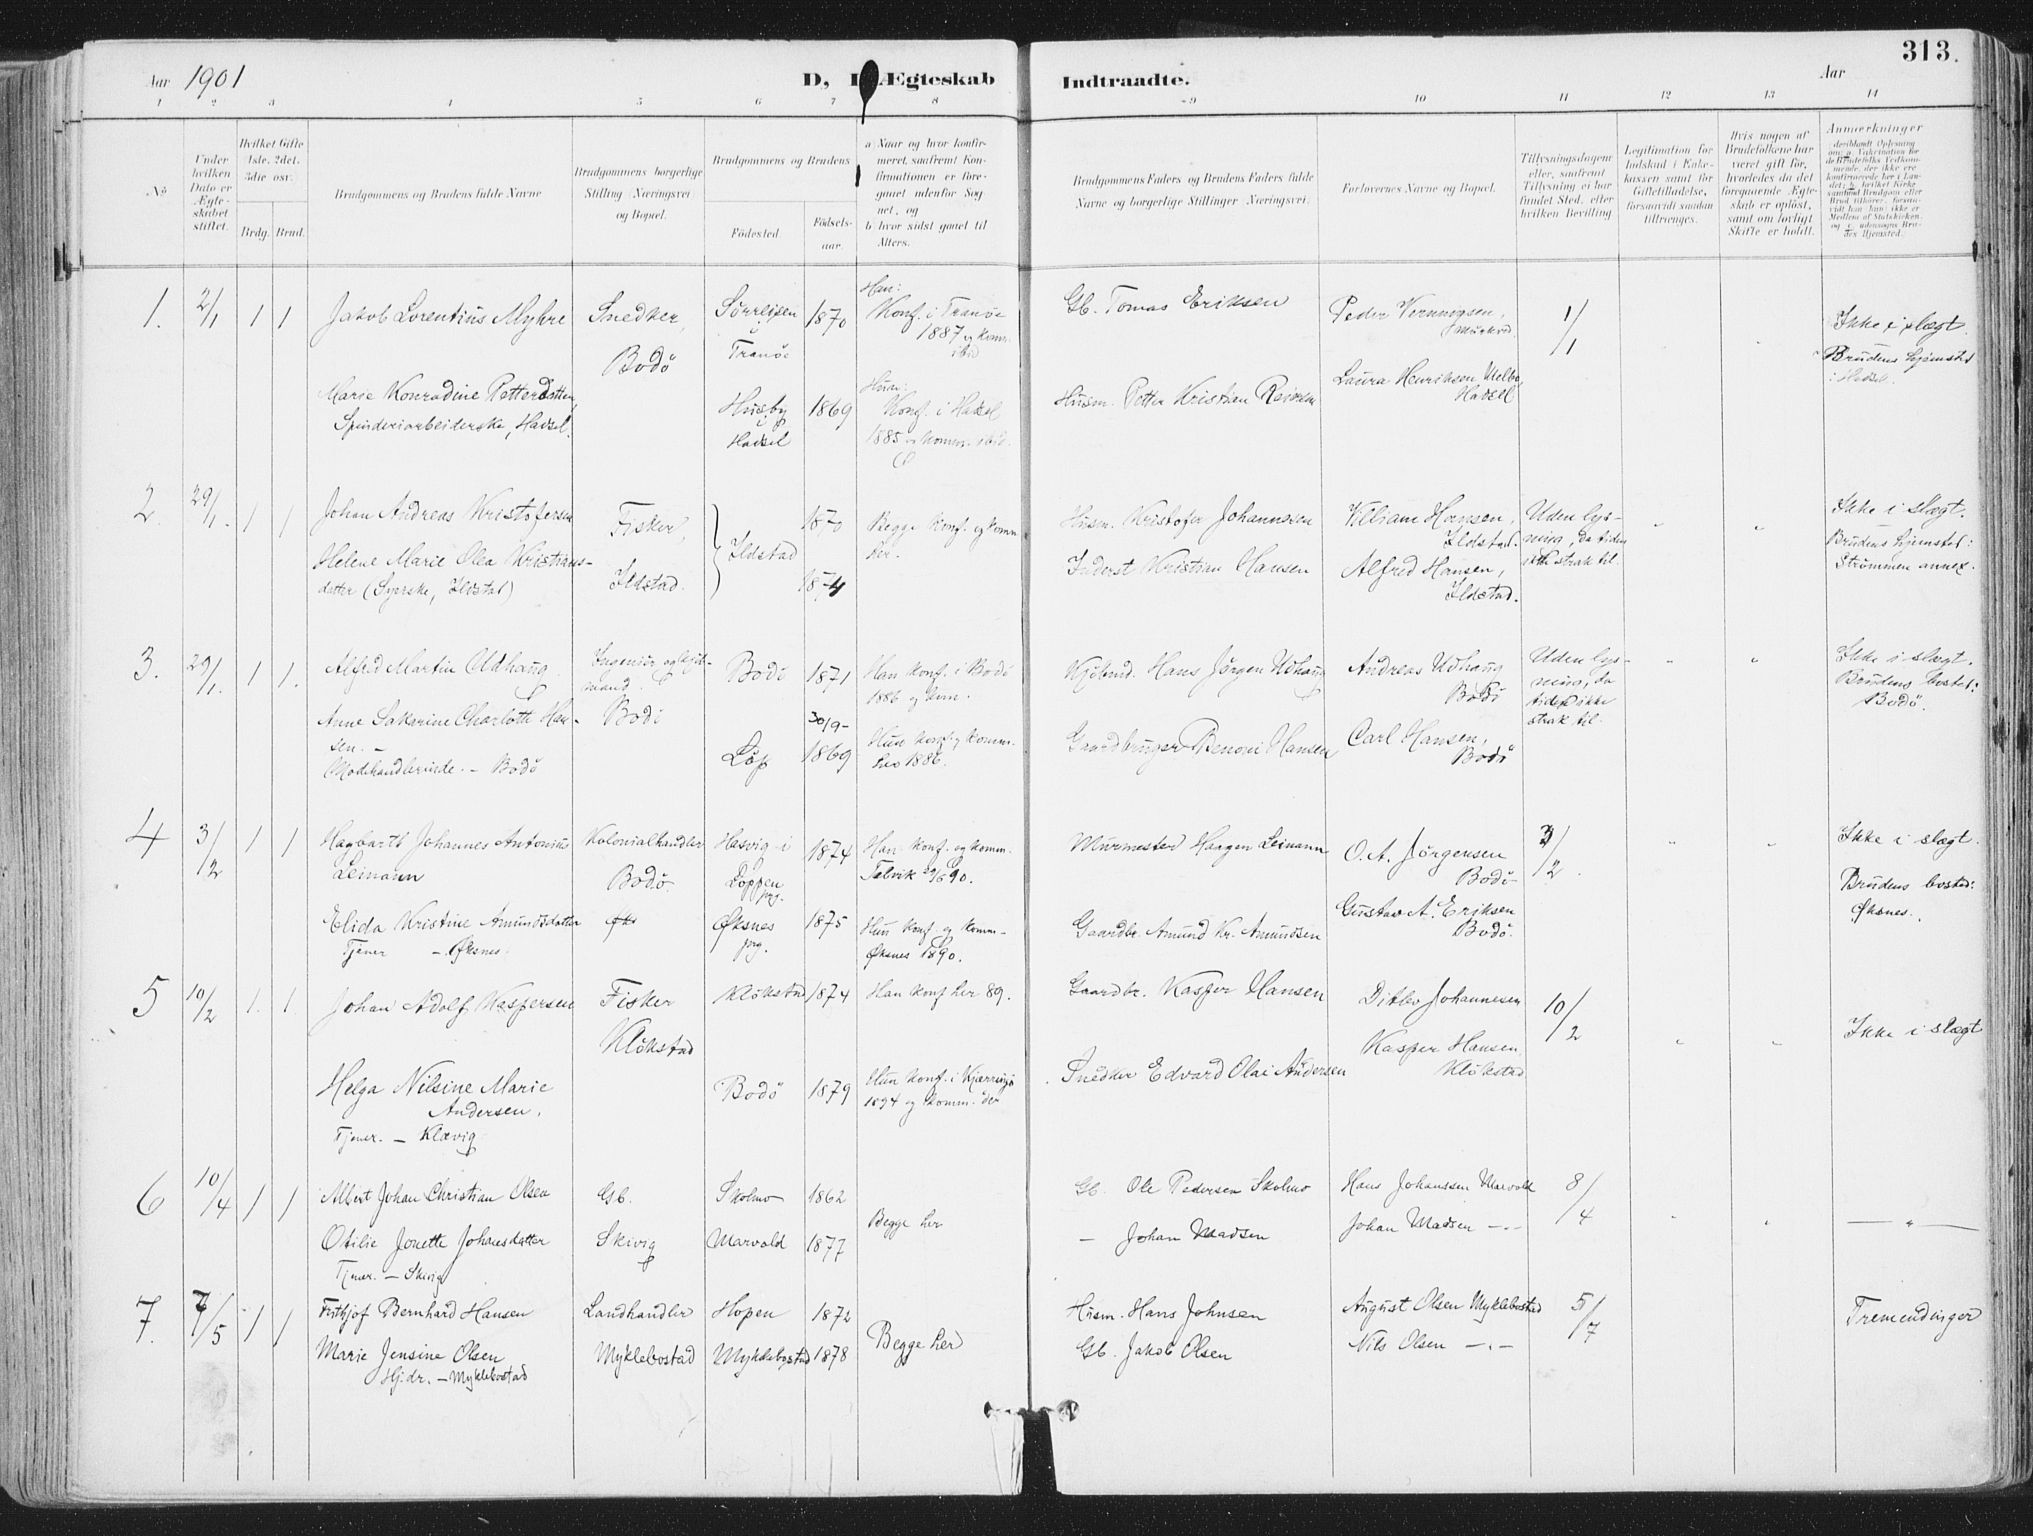 313.
Aar 1901
D, I Ægteskab
Indtraadte.
Aar
1 2 3 4 5 6 7 8
9 10 11 12 13 14
No
Under hvilken Dato er Ægteskabet stiftet.
Hvilket Gifte 1ste, 2det, 3die osv.
Brdg. Brud.
Brudgommens og Brudens fulde Navne
Brudgommens borgerlige Stilling (Næringsvei) og Bopæl.
Brudgommens og Brudens
Födested. Födselsaar.
a) Naar og hvor konfirmeret, saafremt Konfirmationen er foregaaet udenfor Sognet, og
b) hvor sidst gaaet til Alters.
Brudgommens Faders og Brudens Faders fulde Navne og borgerlige Stillinger (Næringsvei).
Forlovernes Navne og Bopæl.
Tillysningsdagene eller, saafremt Tillysning ei har fundet Sted, efter hvilken Bevilling
Legitimation for Indskud i Enkekassen samt for Giftetilladelse, forsaavidt saadan tiltrænges.
Hvis nogen af Brudefolkene har været gift før, hvorledes da det foregaaende Ægteskab er oplöst, samt om lovligt Skifte er holdt.
Anmærkninger
1. 2/1 1 1 Jakob Lorentius Myhre
Snedker, Bodö
Sörreisen i Tranöe 1870
Han: Konf. i Tranöe 1887 og komm. ibid
Gb. Tomas Eriksen
Peder
1/1
Ikke i slægt.
Marie Konradine Petterdatter,
Spinderiarbeiderske, Hadsel.
Husby i Hadsel 1869
Hun: Konf. i Hadsel 1885 og komm. ibid.
Husm. Petter Kristian
Laura Henriksen, Melbo, Hadsel
Brudens hjemsted i Hadsel.
2. 29/1. 1 1 Johan Andreas Kristofersen
Fisker, Ildstad.
Ildstad 1870
Begge konf. og komm. her.
Husm. Kristofer Johannesen
Villiam Hansen, Ildstad.
Uden lysning, da tiden ikke strak til.
Ikke i slægt.
Helene Marie Olea Kristiansdatter (Syerske, Ildstad)
1874
Inderst Kristian Hansen
Alfred Hansen, Ildstad.
Brudens hjemsted: Strömmen annex.
3. 29/1. 1 1. Alfred Martin Udhaug
Ingeniör og kjöbmand. Bodö
Bodö 1871
Han konf. i Bodö 1886 og kom.
Kjöbmd. Hans Jörgen Udhaug
Andreas Udhaug Bodö
Uden lysning, da tiden ikke strak til.
Ikke i slægt.
Anne Sakarine Charlotte Hansen. –
Modehandlerinde. – Bodö
Löp 30/9- 1869
Hun konf. og komm. her 1886.
Gaardbruger Benoni Hansen
Carl Hansen, Bodö
Brudens bosted: Bodö.
4 3/2 1 1 Hagbarth Johannes Antonius Leinann
Kolonialhandler Bodö
Hasvig i Loppen prg. 1874
Han konf. og komm. Talvik 90.
Murmester Haagen Leinann
O. A. Jörgensen Bodö
3/2.
Ikke i slægt.
Elida Kristine Amundsdatter
Tjener – Øksnes.
Øksnes prg. 1875
Hun konf. og komm. Øksnes 1890.
Gaardbr. Amund Kr. Amundsen
Gustav A. Eriksen Bodö.
Brudens bosted: Øksnes.
5 10/2 1. 1. Johan Adolf Kaspersen
Fisker Klökstad
Klökstad 1874
Han konf her 89.
Gaardbr. Kasper Hansen
Ditlev Johannesen
10/2
Ikke i slægt
Helga Nilsine Marie Andersen,
Tjener. – Klævig
Bodö 1879
Hun konf. i Kjærringö 1894 og komm. der
Snedker Edvard Olai Andersen
Kasper Hansen, Klökstad
6 10/4 1 1 Albert Johan Christian Olsen
Gb. Skivig
Skolmo 1862
Begge her
Gb. Ole Pedersen Skolmo
Hans Johanssen Marvold
8/4
— " —
Otilie Jonette Johansdatter
Tjener. – Skivig
Marvold 1877
– Johan Madsen
Johan Madsen –.–
7. 7/5 1 1 Fritjof Bernhard Hansen
Landhandler Myklebostad
Hopen 1872
Begge her
Husm. Hans Johnsen
August Olsen Myklebostad
5/7
Tremendinger
Marie Jensine Olsen
Hj. dr. – Myklebostad
Myklebostad 1878
Gb. Jakob Olsen
Nils Olsen –.–